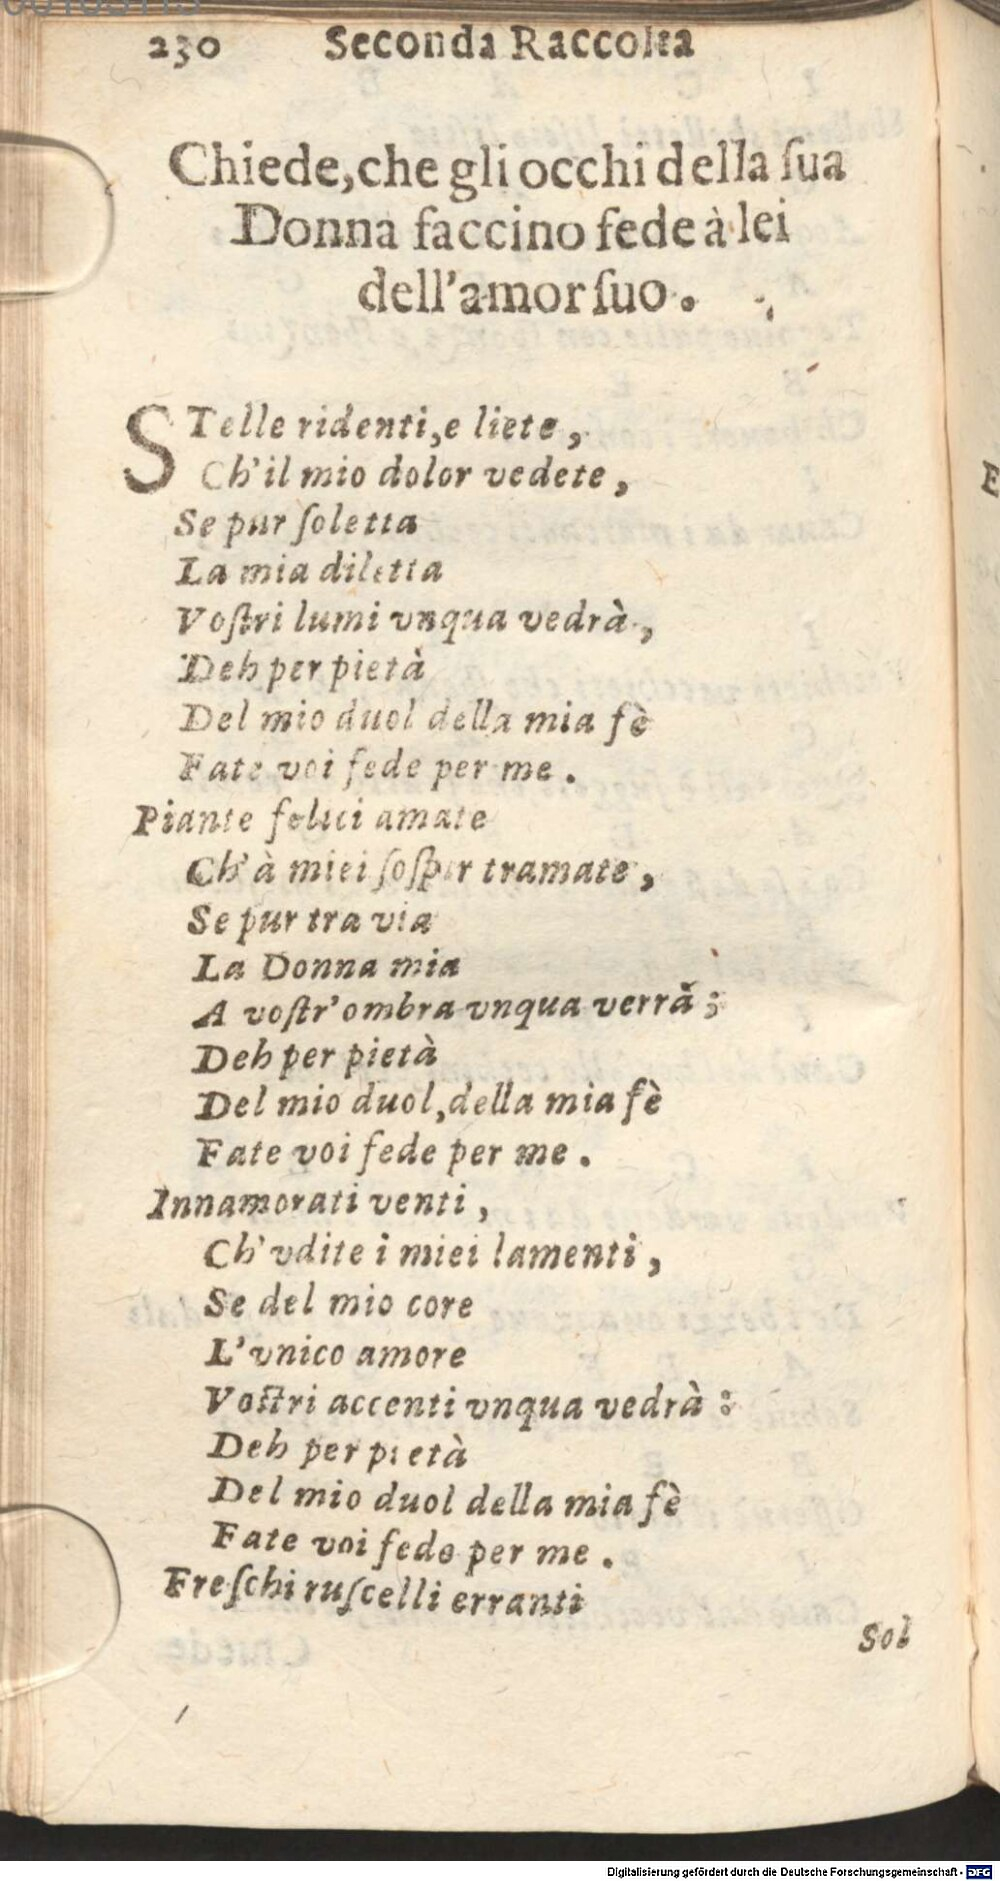 230 Seconda Raccolta
Chiede, che gli occhi della ſua
Donna faccino fede à lei
dell'amor ſuo.
STelle ridenti, e liete,
Ch'il mio dolor vedete,
Se pur ſoletta
La mia diletta
Voſtri lumi vnqua vedrà,
Deh per pietà
Del mio duol della mia fè
Fate voi fede per me.
Piante felici amate
Ch'à miei ſoſpir tramate,
Se pur tra via
La Donna mia
A voſtr'ombra vnqua verrà;
Deh per pietà
Del mio duol, della mia fè
Fate voi fede per me.
Innamorati venti,
Ch'vdite i miei lamenti,
Se del mio core
L'vnico amore
Voſtri accenti vnqua vedrà:
Deh per pietà
Del mio duol della mia fè
Fate voi fede per me.
Freſchi ruſcelli erranti
Sol
Digitalisierung gefördert durch die Deutsche Forschungsgemeinschaft - DFG